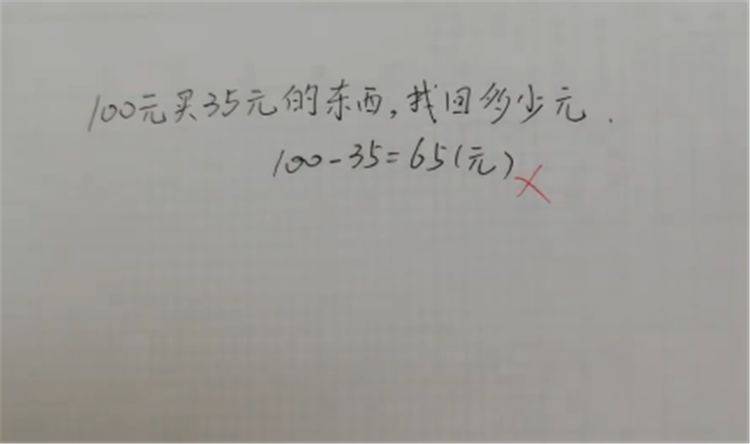 100元买35元的东西,找回多少元.
100-35=65(元)